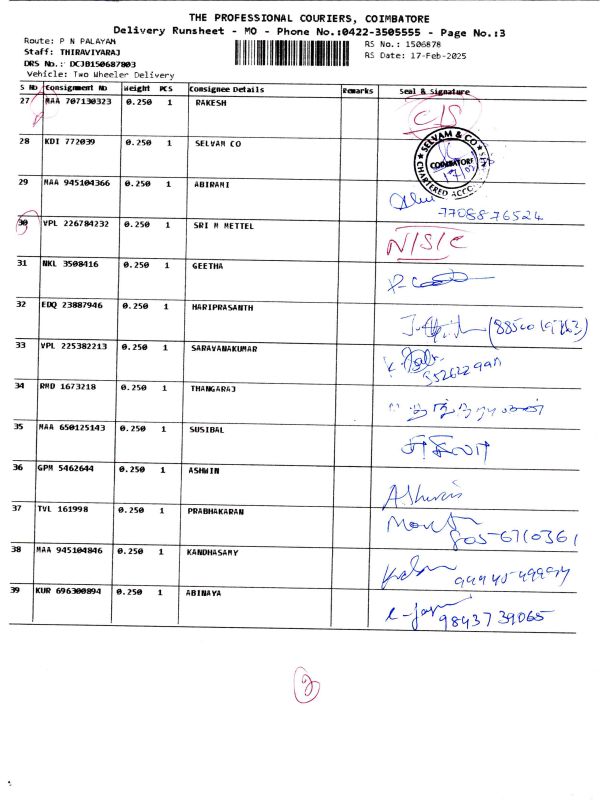 THE PROFESSIONAL COURIERS, COIMBATORE
Delivery Runsheet - MO - Phone No.:0422-3505555 - Page No.:3
Route: P N PALAYAM
RS No.: 1506878
Staff: THIRAVIYARAJ
RS Date: 17-Feb-2025
DRS No.: DCJB150687803
Vehicle: Two Wheeler Delivery
S No Consignment No Weight PCS Consignee Details Remarks Seal & Signature
27 MAA 707130323 0.250 1 RAKESH C/S
28 KDI 772039 0.250 1 SELVAM CO
SELVAM & CO
COIMBATORE
CHARTERED ACCO
29 MAA 945104366 0.250 1 ABIRAMI
7708876524
30 VPL 226784232 0.250 1 SRI M METTEL N/S/C
31 NKL 3508416 0.250 1 GEETHA
32 EDQ 23887946 0.250 1 HARIPRASANTH
33 VPL 225382213 0.250 1 SARAVANAKUMAR
34 RMD 1673218 0.250 1 THANGARAJ
35 MAA 650125143 0.250 1 SUSIBAL
36 GPM 5462644 0.250 1 ASHWIN Ashwin
37 TVL 161998 0.250 1 PRABHAKARAN
805-6710361
38 MAA 945104846 0.250 1 KANDHASAMY
39 KUR 696300894 0.250 1 ABINAYA
9843739065
2